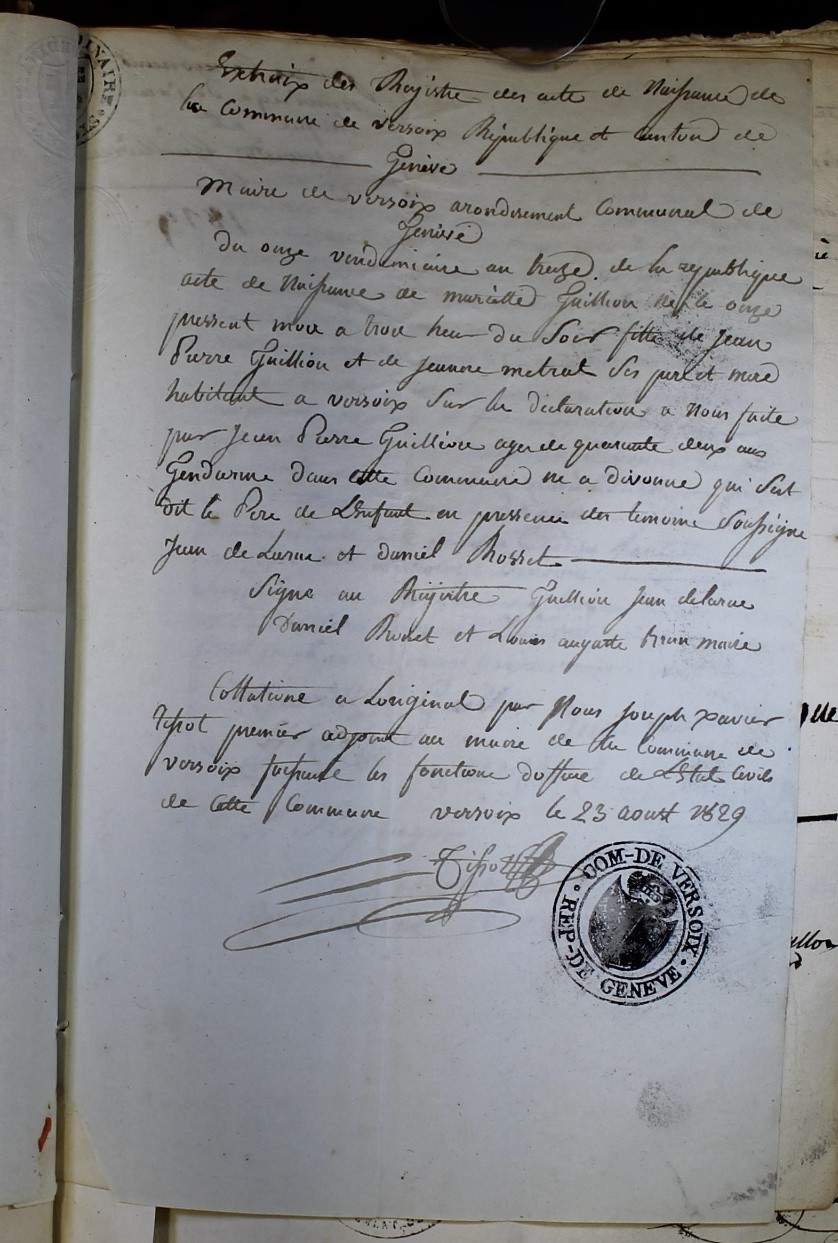 Extraix des Regístre des acte de Naissance de
la Commune de versoix République et canton de
Genève
Maire de versoix arondisement Communal de
Genève
Du onze vendemiaire an treize de la republique
acte de Naissance de Guillion née le onze
pressent mois a trois heur du Soir fille de Jean
Pierre Guillion et de Jeanne metral Ses pere et mere
habitant a versoix Sur la declaration a Nous faite
par Jean Pierre Guillion ager de quarante deux ans
Gendarme dans cette Commune né a divonne qui Sest
dit le Pere de LEnfant en pressence des temoins Soussigne
Jean de Larue et Daniel Rosset
Signe au Régistre Guillion Jean delarue
Daniel Rosset et Louis auguste maire
Collatione a Loriginal par Nous Joseph xavier
Tissot premier adjoint au maire de la Commune de
versoix faisant les fonctions de LEtat Civils
de cette Commune versoix le 23 aoust 1829
Tissot
COM-DE VERSOIX
REP-DE GENEVE